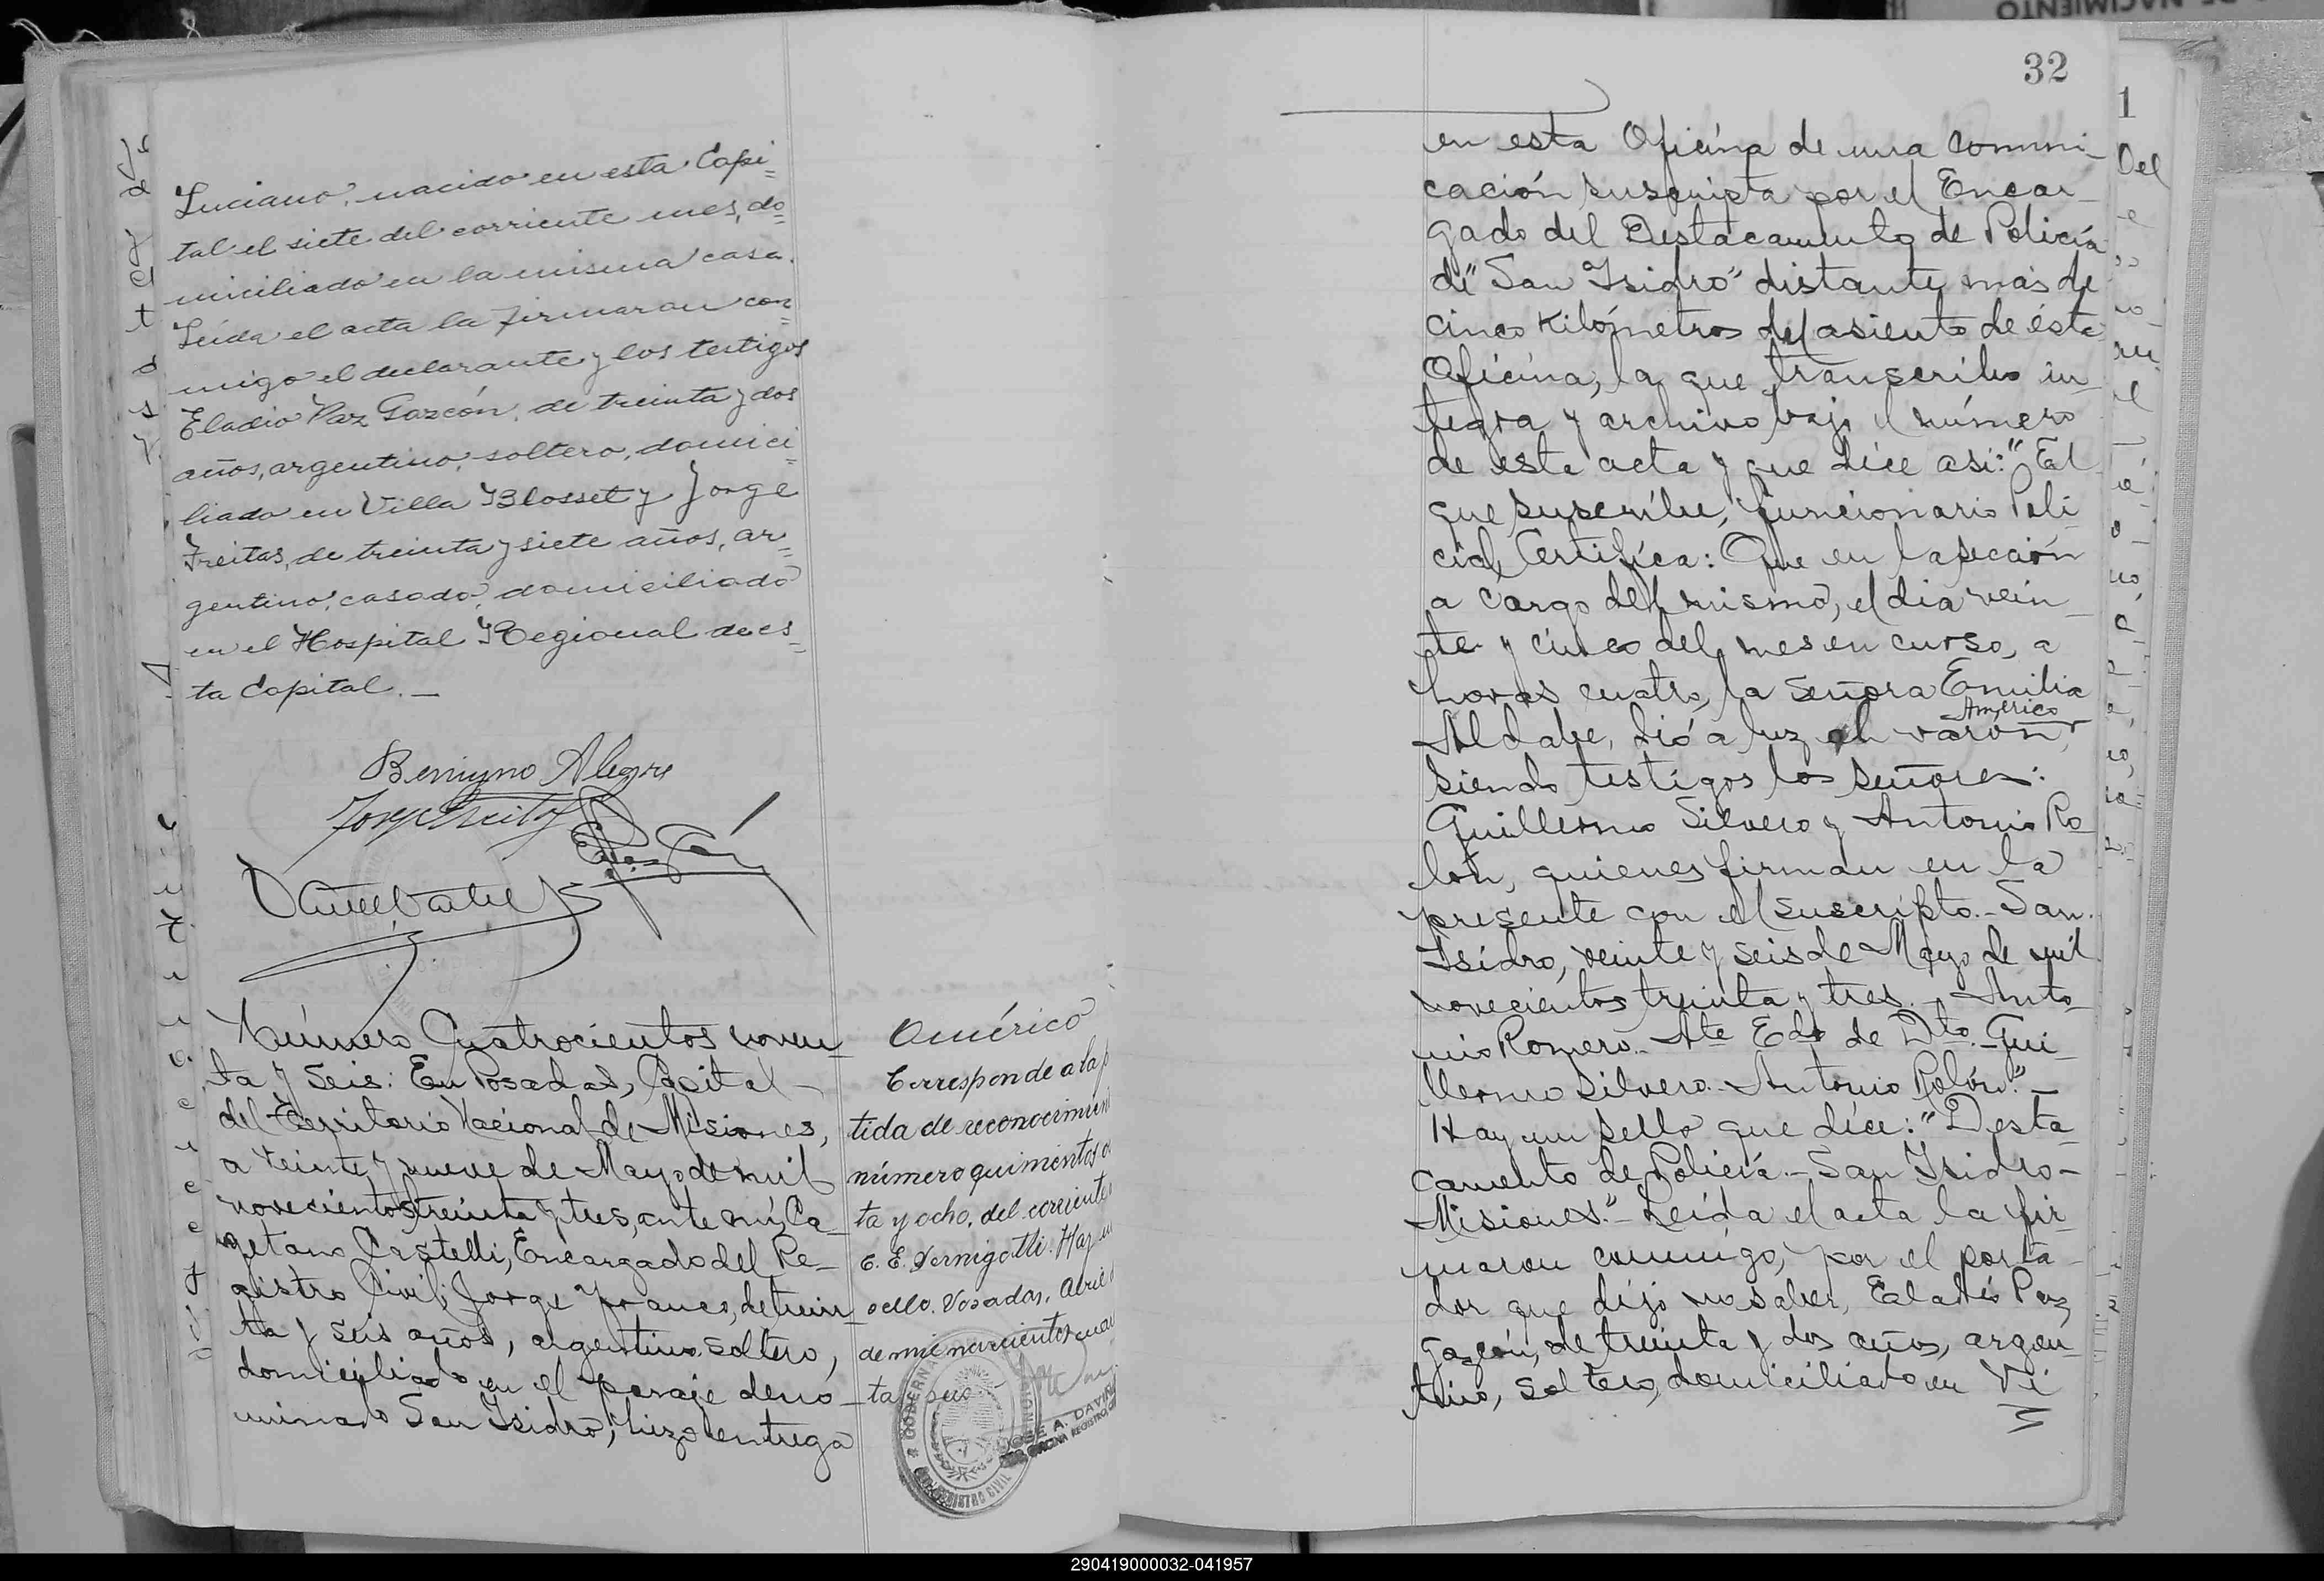 Luciano, nacido en esta Capi=
tal el siete del corriente mes, do=
miciliado en la misma casa.
Leída el acta la firmaron con=
migo el declarante y los testigos
Eladio Paz Gazcón, de treinta y dos
años, argentino, soltero, domici=
liado en Villa Blosset y Jorge
Freitas, de treinta y siete años, ar=
gentino, casado, domiciliado
en el Hospital Regional de es=
ta Capital.—
Benigno Alegre
Número Cuatrocientos noven_
ta y Seis: En Posadas, Capital
del Territorio Nacional de Misiones,
a veinte y nueve de Mayo de mil
novecientos treinta y tres, ante mí, Ca_
yetano Castelli, Encargado del Re_
gistro Civil; Jorge Franco, de trein_
ta y seis años, argentino, soltero,
domiciliado en el paraje deno_
minado San Isidro, hizo entrega
Américo
Corresponde a la p
tida de reconocimien
número quinientos
ta y ocho, del corriente
C. E. Vernigotti. Hay un
sello. Posadas, Abril
de mil novecientos cua
GOBERNA
REGISTRO CIVIL
JOSE A. DAVI
OFICINA REGISTRO
32
en esta Oficina de una comuni_
cación suscripta por el Encar_
gado del Destacamento de Policía
de "San Isidro" distante más de
cinco kilómetros del asiento de ésta
Oficina, la que transcribo ín_
tegra y archivo bajo el número
de esta acta y que dice así: "El
que suscribe, funcionario Poli_
cial Certifica: Que en la sección
a cargo del mismo, el día vein_
te y cinco del mes en curso, a
horas cuatro, la Señora Emilia
Américo
Aldabe, dió a luz un varón,
siendo testigos los Señores:
Guillermo Silvero y Antonio Ro_
lón, quienes firman en la
presente con el suscripto.- San
Isidro, veinte y seis de Mayo de mil
novecientos treinta y tres.- Anto_
nio Romero.- Ate Edo de Dto.- Gui_
llermo Silvero.- Antonio Rolón".-
Hay un sello que dice: "Desta_
camento de Policía.- San Isidro-
Misiones".- Leída el acta la fir_
maron conmigo, por el porta_
dor que dijo no saber, Eladio Paz
Gazcón, de treinta y dos años, argen_
tino, soltero, domiciliado en Vi
1
Del
290419000032-041957